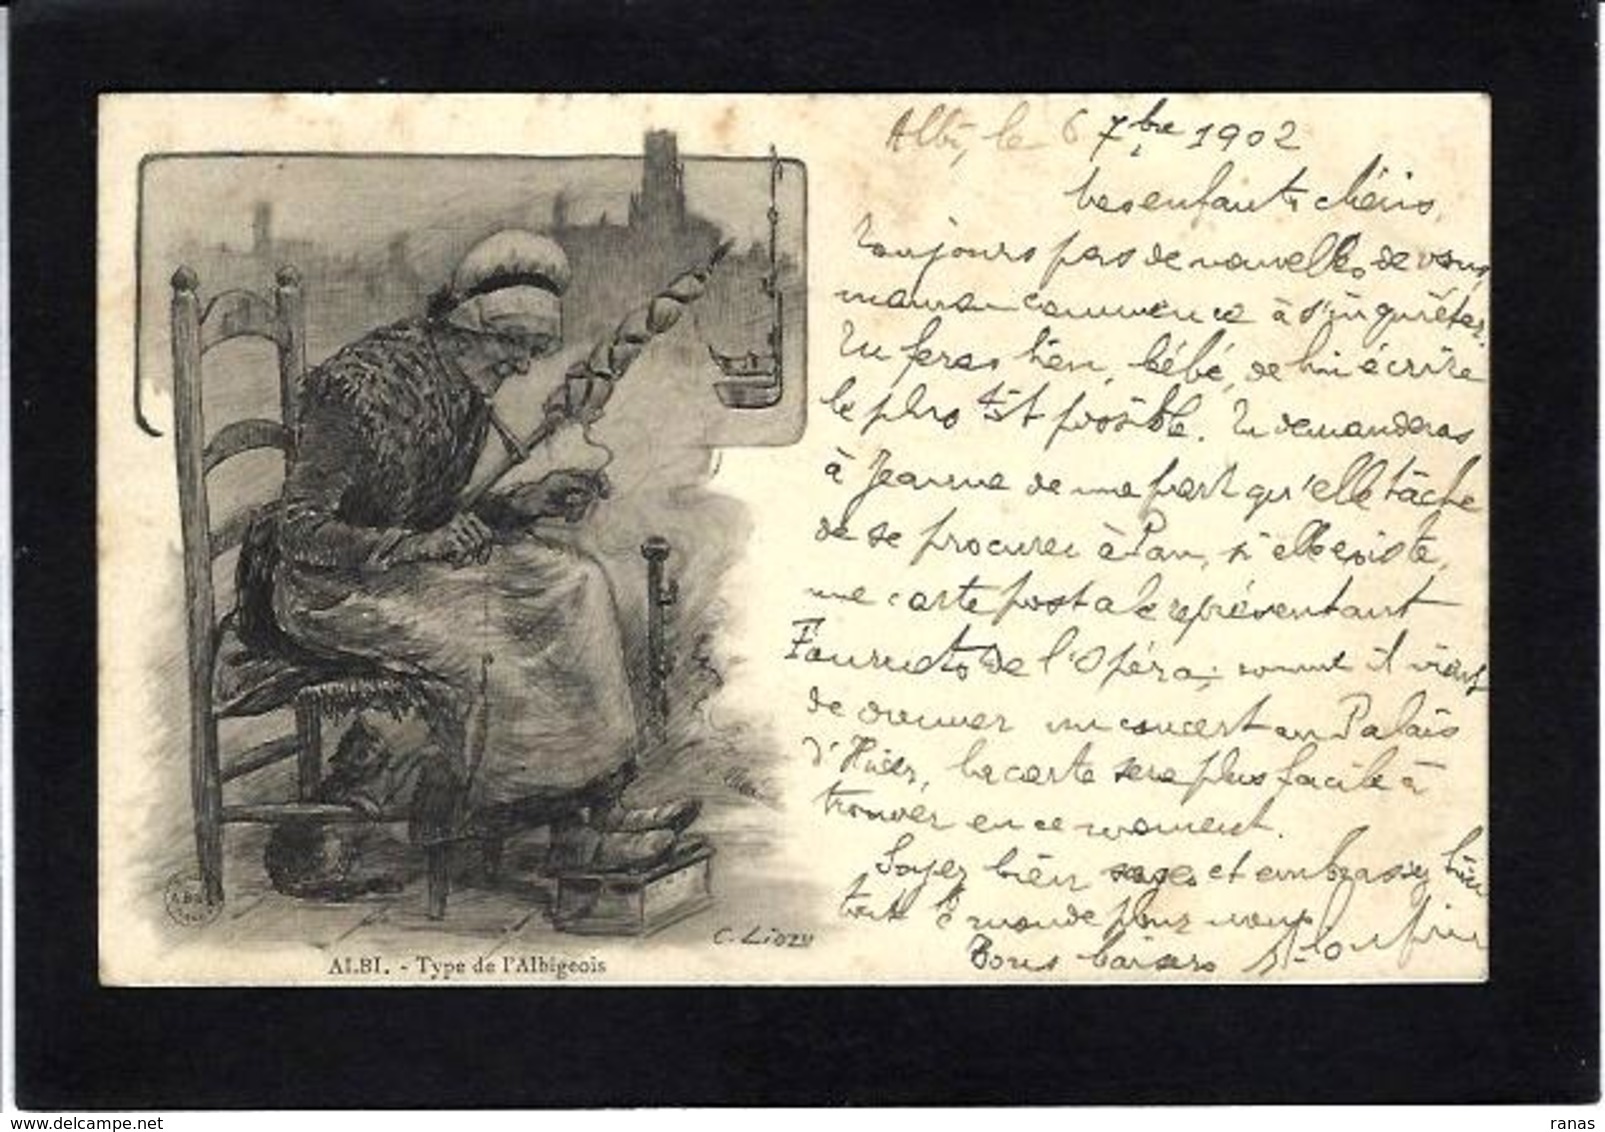 Albi, le 6 7bre 1902
Mes enfants chéris,
Toujours pas de nouvelles de vous,
maman commence à s'inquiéter.
Tu feras bien, bébé, de lui écrire
le plus tôt possible. Tu demanderas
à Jeanne de ma part qu'elle tâche
de se procurer à Pau, si elle existe,
une carte postale représentant
Fournets de l'Opéra; comme il vient
de donner un concert au Palais
d'Hiver, la carte sera plus facile à
trouver en ce moment.
Soyez bien sages et embrassez bien
tout le monde pour nous
Bons baisers
C. Liozu
ALBI. - Type de l'Albigeois
ranas